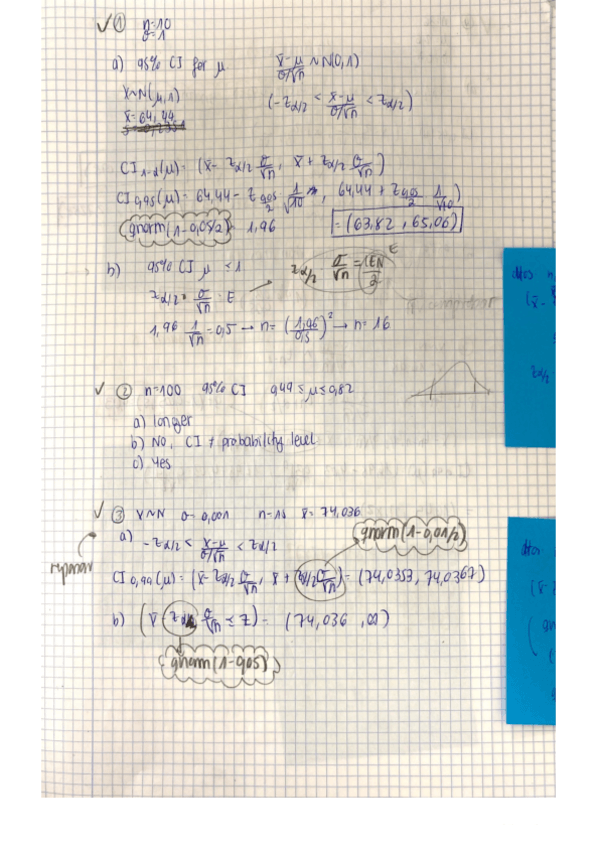 ✓ ① n=10
σ=1
a) 95% CI for μ x̄-μ/σ/√n ~N(0,1)
X~N(μ,1) (-zα/2 < x̄-μ/σ/√n < zα/2)
x̄=64,44
CI1-α(μ)= (x̄- zα/2 σ/√n, x̄+ zα/2 σ/√n)
CI0,95(μ)= 64,44- z0,05/2 1/√10, 64,44 + z0,05/2 1/√10)
qnorm(1-0,05/2) 1,96 =(63,82, 65,06)
b) 95% CI μ <1 zα/2 σ/√n = LEN/2 E
zα/2 · σ/√n = E
1,96 1/√n =0,5 → n= (1,96/0,5)² → n=16
✓ ② n=100 95% CI 0,49 ≤ μ ≤ 0,82
a) longer
b) No, CI ≠ probability level
c) Yes
✓ ③ X~N σ=0,001 n=15 x̄= 74,036
a) -zα/2 < x̄-μ/σ/√n < zα/2 qnorm(1-0,01/2)
CI0,99(μ)= (x̄- zα/2 σ/√n, x̄ + zα/2 σ/√n)= (74,0353, 74,0367)
b) = (74,036, ∞)
qnorm(1-0,05)
datos
zα/2
datos